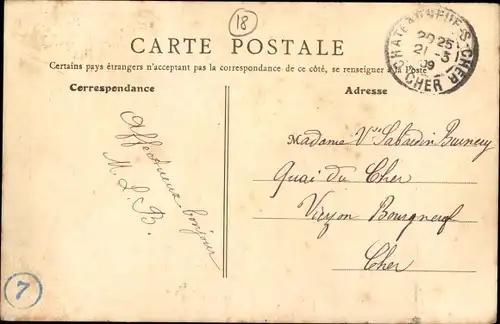 18
CARTE POSTALE
Certains pays étrangers n'acceptant pas la correspondance de ce côté, se renseigner à la Poste
Correspondance
Adresse
CHATEAUNEUF-S-CHER
20 25
21 - 3
09
CHER
Affectueux bonjour
M. L. B.
Madame Vve Sabardin Burney
Quai du Cher
Vierzon Bourgneuf
Cher
7